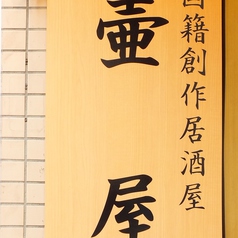 国籍創作居酒屋
壷屋